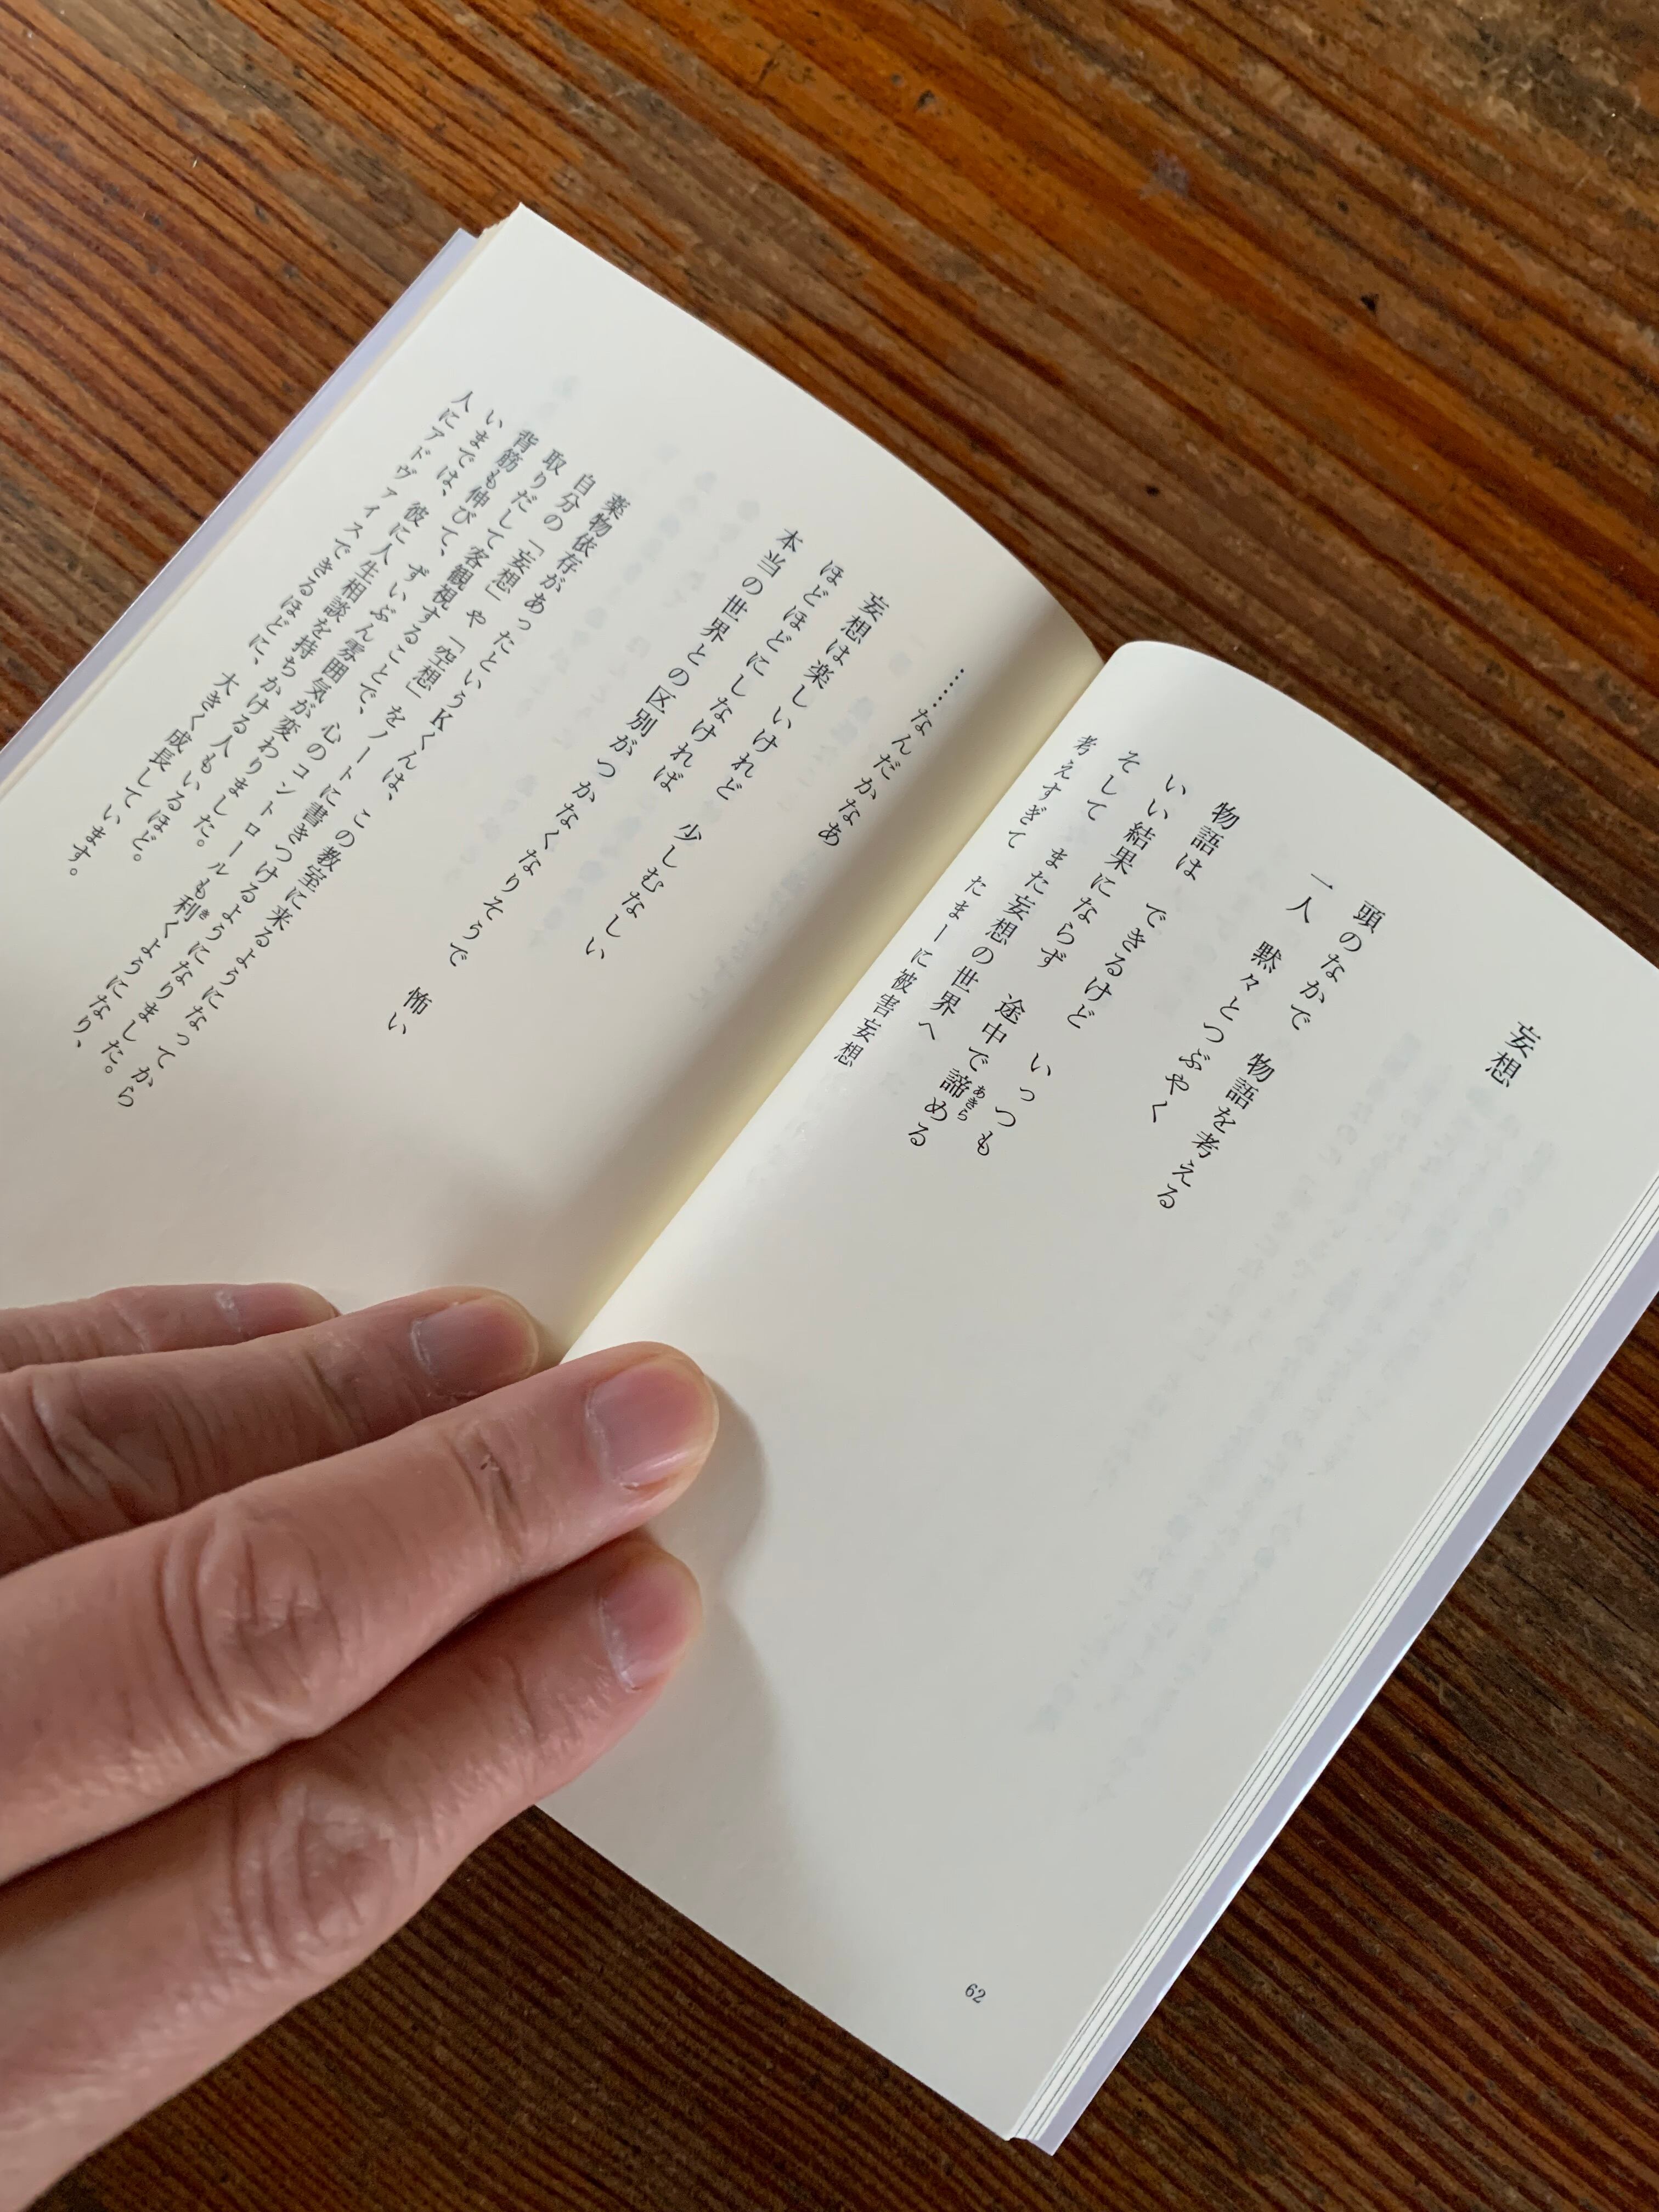 妄想
頭のなかで　物語を考える
一人　黙々とつぶやく
物語は　できるけど　いっつも
いい結果にならず　途中で諦める
そして　また妄想の世界へ
考えすぎて　たまーに被害妄想
62
……なんだかなあ
妄想は楽しいけれど　少しむなしい
ほどほどにしなければ
本当の世界との区別がつかなくなりそうで　怖い
薬物依存があったというKくんは、この教室に来るようになってから
自分の「妄想」や「空想」をノートに書きつけるようになりました。
取りだして客観視することで、心のコントロールも利くようになり、
背筋も伸びて、ずいぶん雰囲気が変わりました。
いまでは、彼に人生相談を持ちかける人もいるほど。
人にアドヴァイスできるほどに、大きく成長しています。